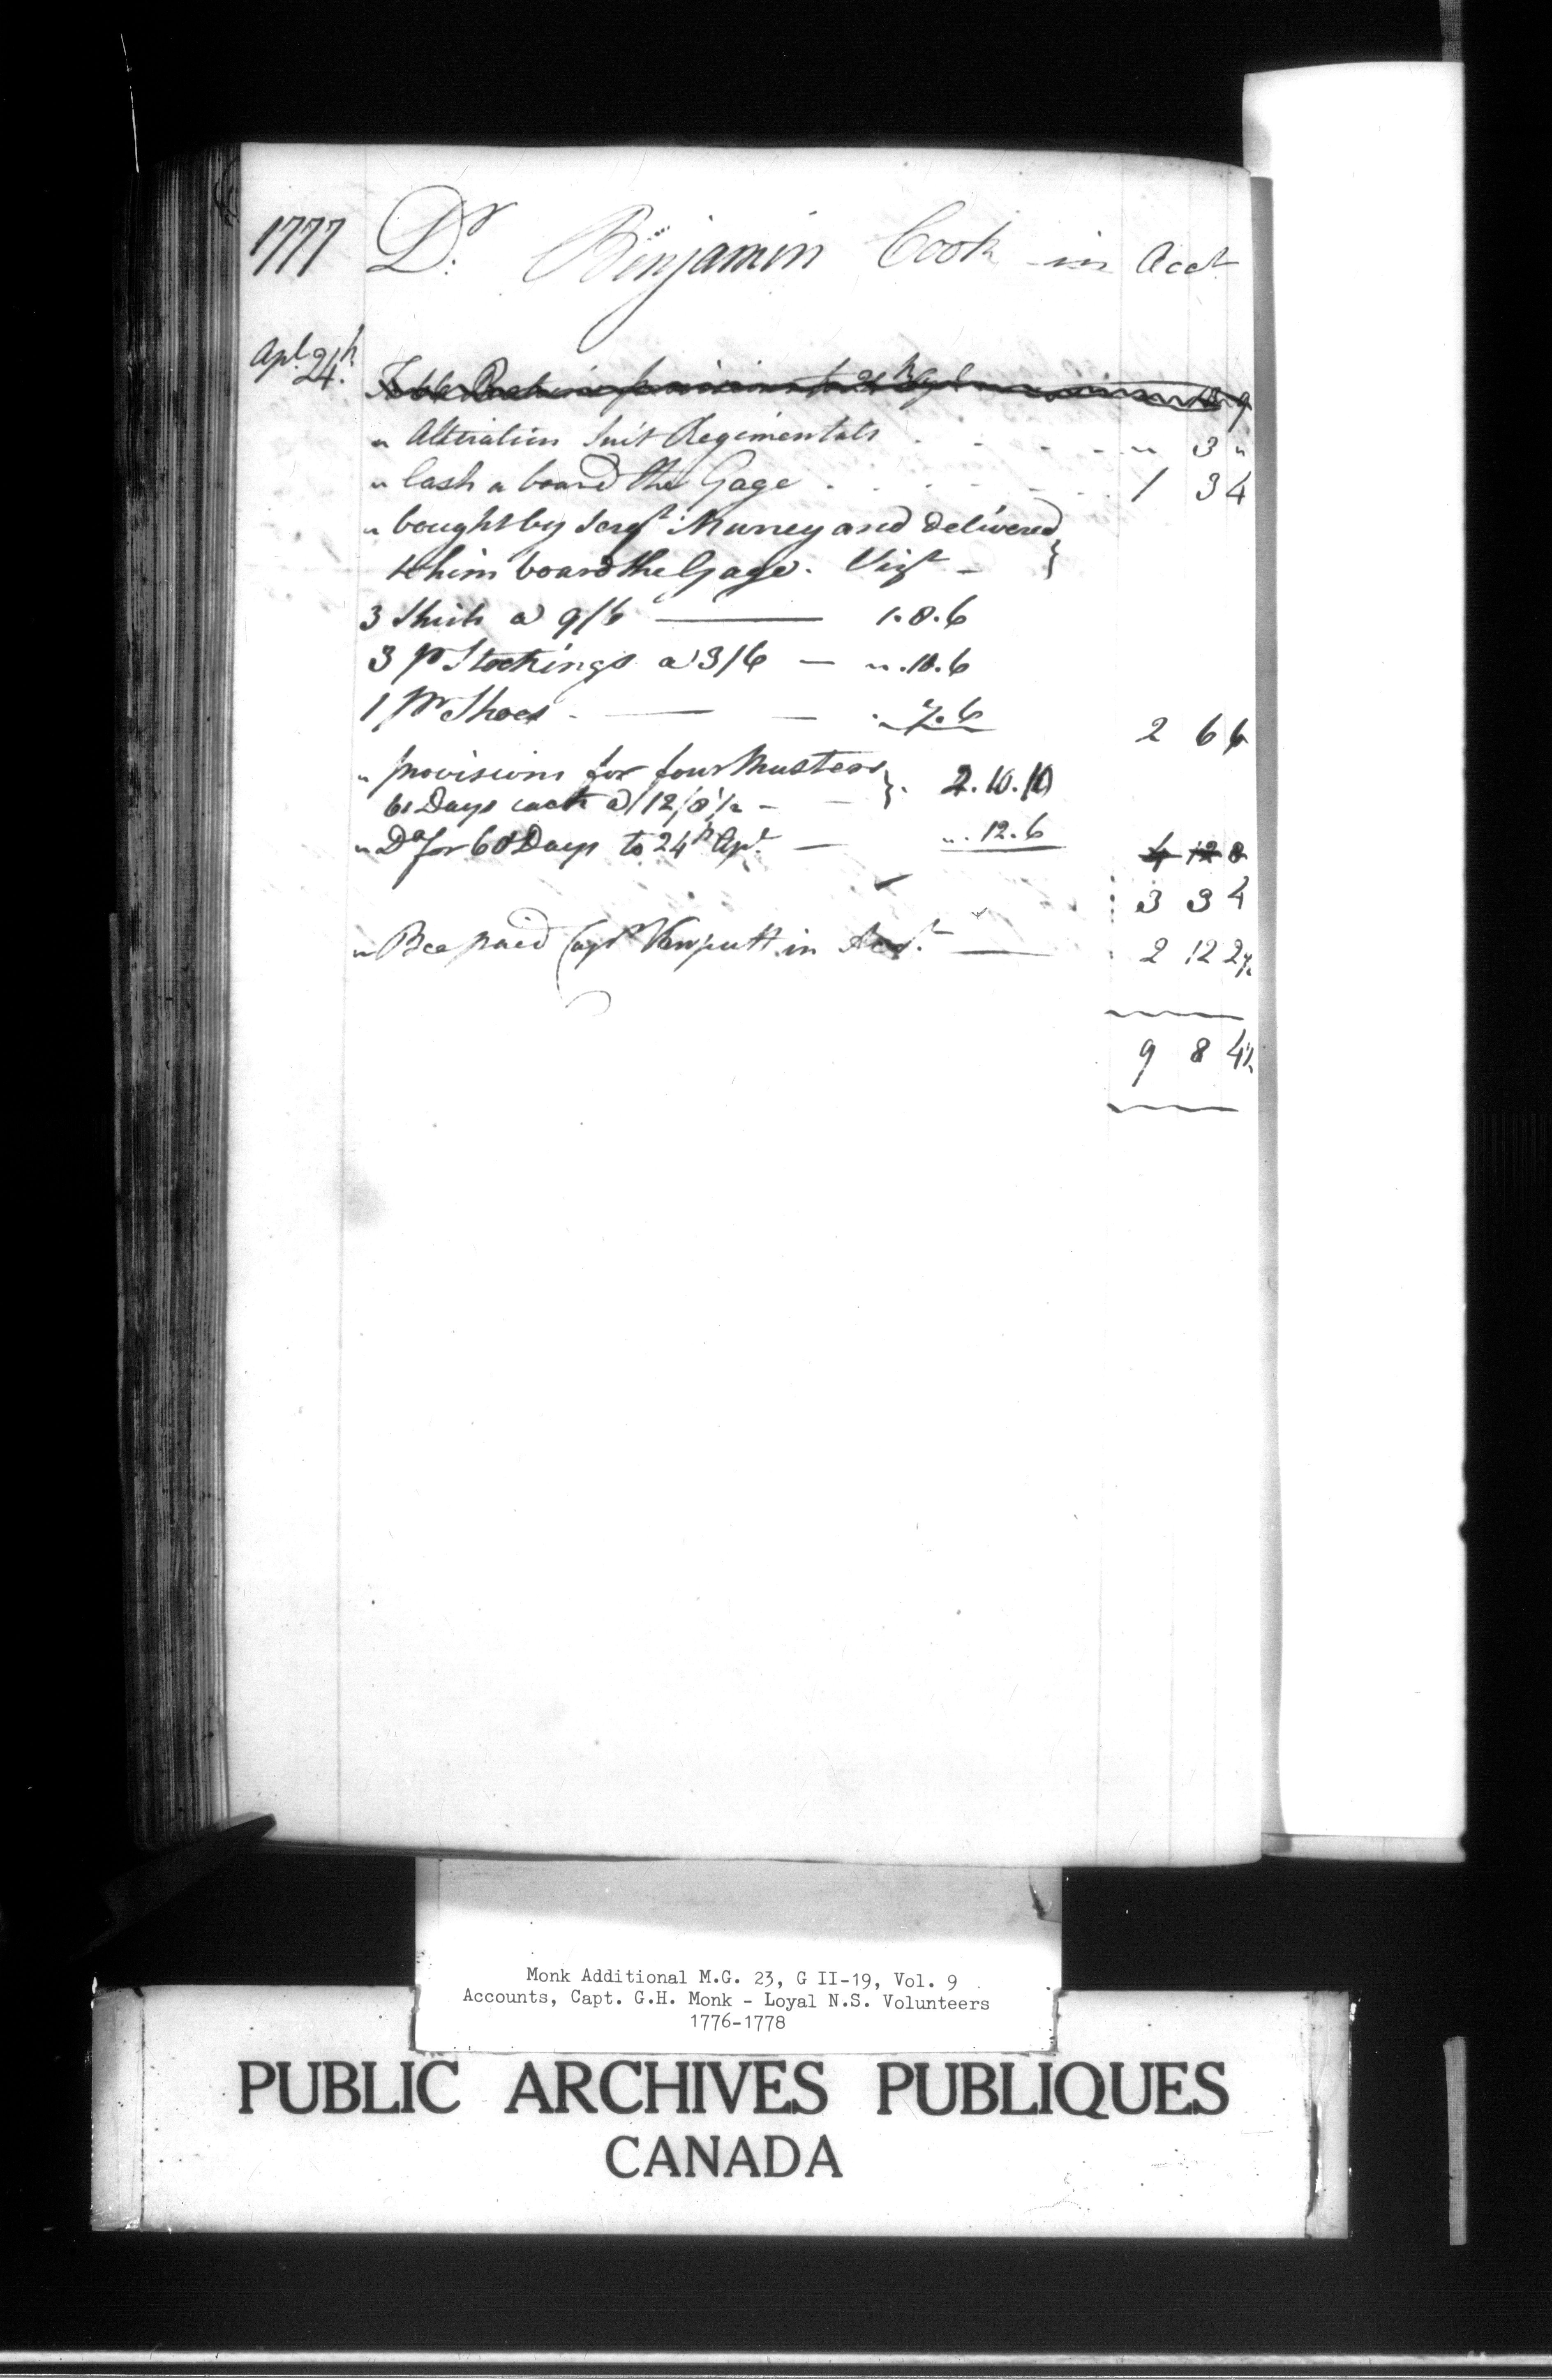 1777 Dr. Benjamin Cook in Acct
Apl. 24th
" Alteration Suit Regimentals . - - - " 3 "
" Cash a board the Gage . - - - 1 3 4
" bought by Sergt. Murrey and delivered
to him board the Gage. Vizt -
3 Shirts a 9/6 — 1.8.6
3 pr Stockings a 3/6 — ".10.6
1 pr Shoes - — — ".7.6
2 6 6
" provisions for four Musters
61 Days each a 12/8½ - - 2.10.10
" Do for 60 Days to 24th Apl. — ".12.6
4 12 8
3 3 4
" Bce paid Capt Vanputt in Acct. — 2 12 2½
9 8 4½
Monk Additional M.G. 23, G II-19, Vol. 9
Accounts, Capt. G.H. Monk - Loyal N.S. Volunteers
1776-1778
PUBLIC ARCHIVES PUBLIQUES
CANADA